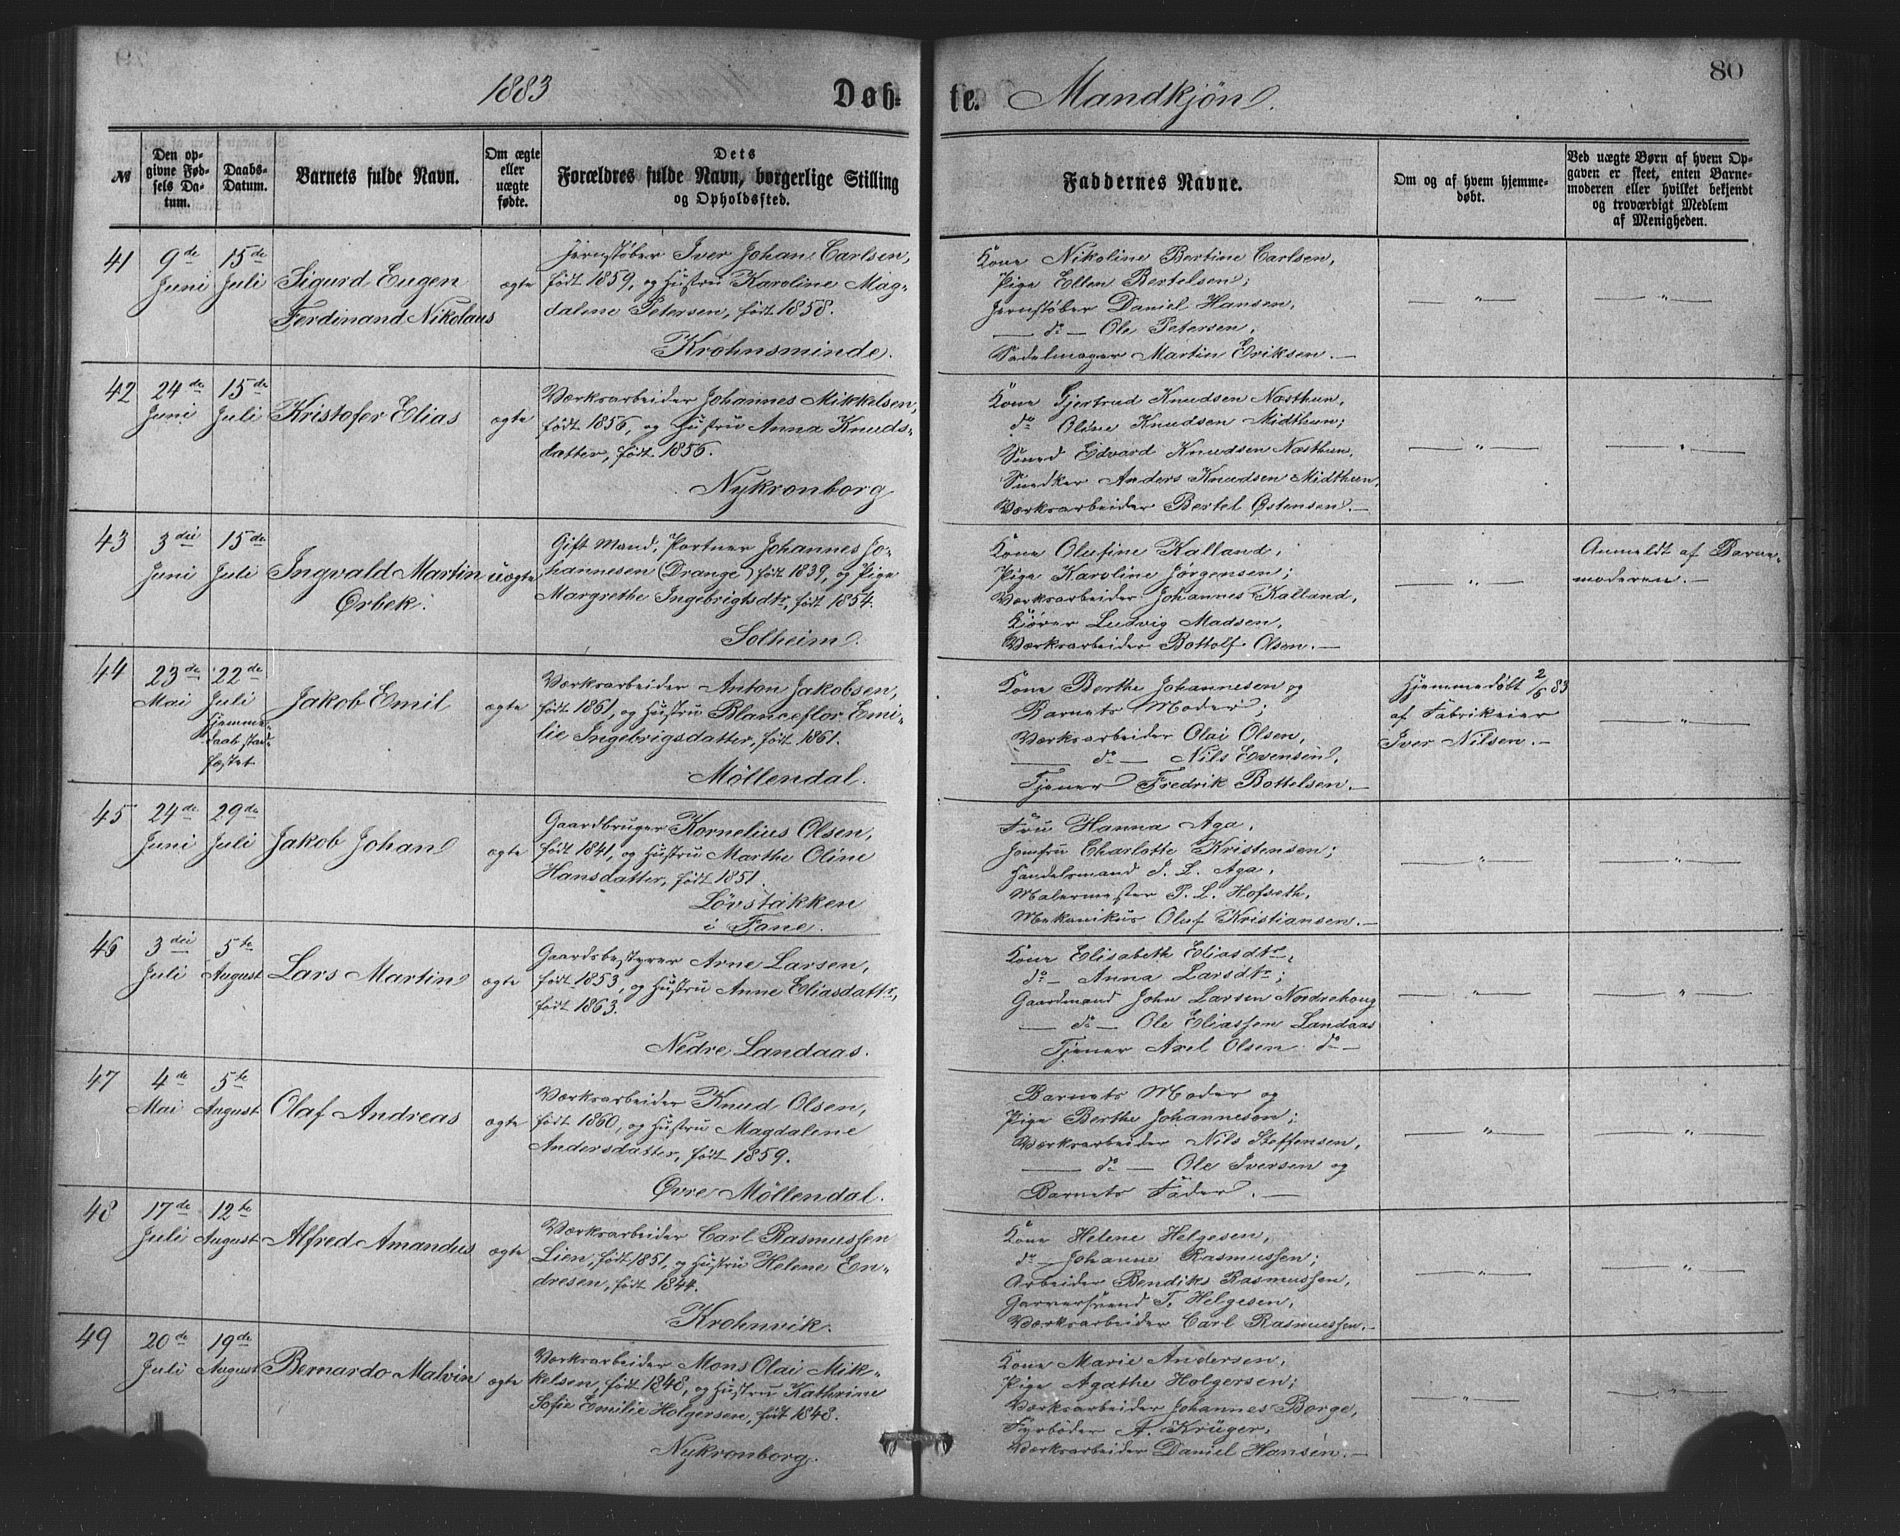 1883
Døb-
te. Mandkjön.
80
№
Den op-
givne Fød-
sels Da-
tum.
Daabs-
Datum.
Barnets fulde Navn.
Om ægte
eller
uægte
fødte.
Dets
Forældres fulde Navn, borgerlige Stilling
og Opholdssted.
Faddernes Navne.
Om og af hvem hjemme-
døbt.
Ved uægte Børn af hvem Op-
gaven er skeet, enten Barne-
moderen eller hvilket bekjendt
og troværdigt Medlem
af Menigheden.
41
9de
Juni
15de
Juli
Sigurd Eugen
Ferdinand Nikolaus
ægte
Jernstøber Iver Johan Carlsen,
født 1859, og Hustru Karoline Mag-
dalene Petersen, født 1858.
Krohnsminde.
Kone Nikoline Bertine Carlsen,
Pige Ellen Bertelsen;
Jernstøber Daniel Hansen,
— do — Ole Petersen,
Sadelmager Martin Eriksen. —
— " —
— " —
42
24de
Juni
15de
Juli
Kristofer Elias
ægte
Værksarbeider Johannes Mikkelsen,
født 1856, og Hustru Anna Knuds-
datter, født 1856.
Nykronborg
Kone Gjertrud Knudsen Næsthun,
do Oline Knudsen Midthun;
Smed Edvard Knudsen Næsthun,
Snedker Anders Knudsen Midthun,
Værksarbeider Bertel Østensen. —
— " —
— " —
43
3die
Juni
15de
Juli
Ingvald Martin
Örbek.
uægte
Gift Mand, Portner Johannes Jo-
hannesen (Drange) født 1839, og Pige
Margrethe Ingebrigtsdtr, født 1854.
Solheim.
Kone Olufine Kalland,
Pige Karoline Jörgensen;
Værksarbeider Johannes Kalland,
Kjörer Ludvig Madsen,
Værksarbeider Bottolf Olsen. —
— " —
Anmeldt af Barne-
moderen. —
44
23de
Mai
22de
Juli
Hjemme-
daab stad-
fæstet
Jakob Emil
ægte
Værksarbeider Anton Jakobsen,
født 1861, og Hustru Blanceflor Emi-
lie Ingebrigsdatter, født 1861.
Möllendal.
Kone Berthe Johannesen og
Barnets Moder;
Værksarbeider Olai Olsen,
— do — Nils Evensen,
Tjener Fredrik Bottelsen. —
Hjemmedöbt 2/6 83
af Fabrikeier
Iver Nilsen. —
— " —
45
24de
Juni
29de
Juli
Jakob Johan
ægte
Gaardbruger Kornelius Olsen,
født 1841, og Hustru Marthe Oline
Hansdatter, født 1851.
Lövstakken
i Fane.
Fru Hanna Aga,
Jomfru Charlotte Kristensen;
Handelsmand J. L. Aga,
Malermester P. L. Hofseth,
Mekanikus Oluf Kristiansen. —
— " —
— " —
46
3die
Juli
5te
August
Lars Martin
ægte
Gaardsbestyrer Arne Larsen,
født 1853, og Hustru Anne Eliasdattr,
født 1863.
Nedre Landaas.
Kone Elisabeth Eliasdtr,
do — Anna Larsdtr;
Gaardmand John Larsen Nordrehoug
— do — Ole Eliassen Landaas
Tjener Axel Olsen do —
— " —
— " —
47
4de
Mai
5te
August
Olaf Andreas
ægte
Værksarbeider Knud Olsen,
født 1860, og Hustru Magdalene
Andersdatter, født 1859.
Øvre Möllendal.
Barnets Moder og
Pige Berthe Johannesen;
Værksarbeider Nils Steffensen,
— do — Ole Iversen og
Barnets Fader. —
— " —
— " —
48
17de
Juli
12te
August
Alfred Amandus
ægte
Værksarbeider Carl Rasmussen
Lien, født 1851, og Hustru Helene En-
dresen, født 1844.
Krohnvik.
Kone Helene Helgesen,
do — Johanne Rasmussen;
Arbeider Bendiks Rasmussen,
Garversvend T. Helgesen,
Værksarbeider Carl Rasmussen. —
— " —
— " —
49
20de
Juli
19de
August
Bernardo Malvin
ægte
Værksarbeider Mons Olai Mik-
kelsen, født 1848, og Hustru Kathrine
Sofie Emilie Holgersen, født 1848.
Nykronborg.
Kone Marie Andersen,
Pige Agathe Holgersen;
Værksarbeider Johannes Borge,
Fyrböder A. Krüger,
Værksarbeider Daniel Hansen. —
— " —
— " —